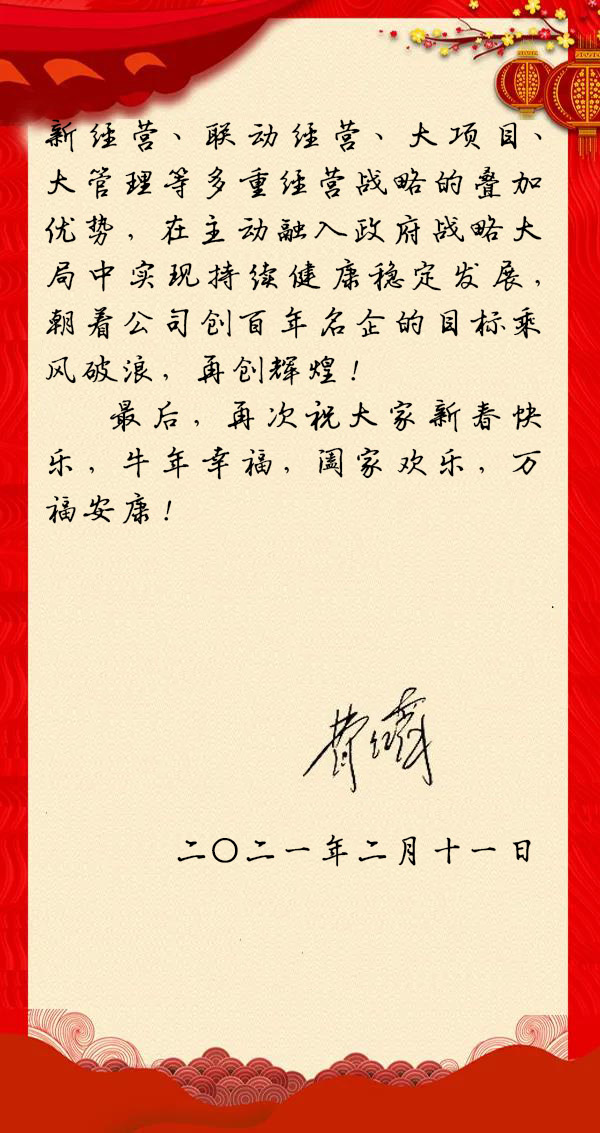 新经营、联动经营、大项目、
大管理等多重经营战略的叠加
优势，在主动融入政府战略大
局中实现持续健康稳定发展，
朝着公司创百年名企的目标乘
风破浪，再创辉煌！
最后，再次祝大家新春快
乐，牛年幸福，阖家欢乐，万
福安康！
二〇二一年二月十一日